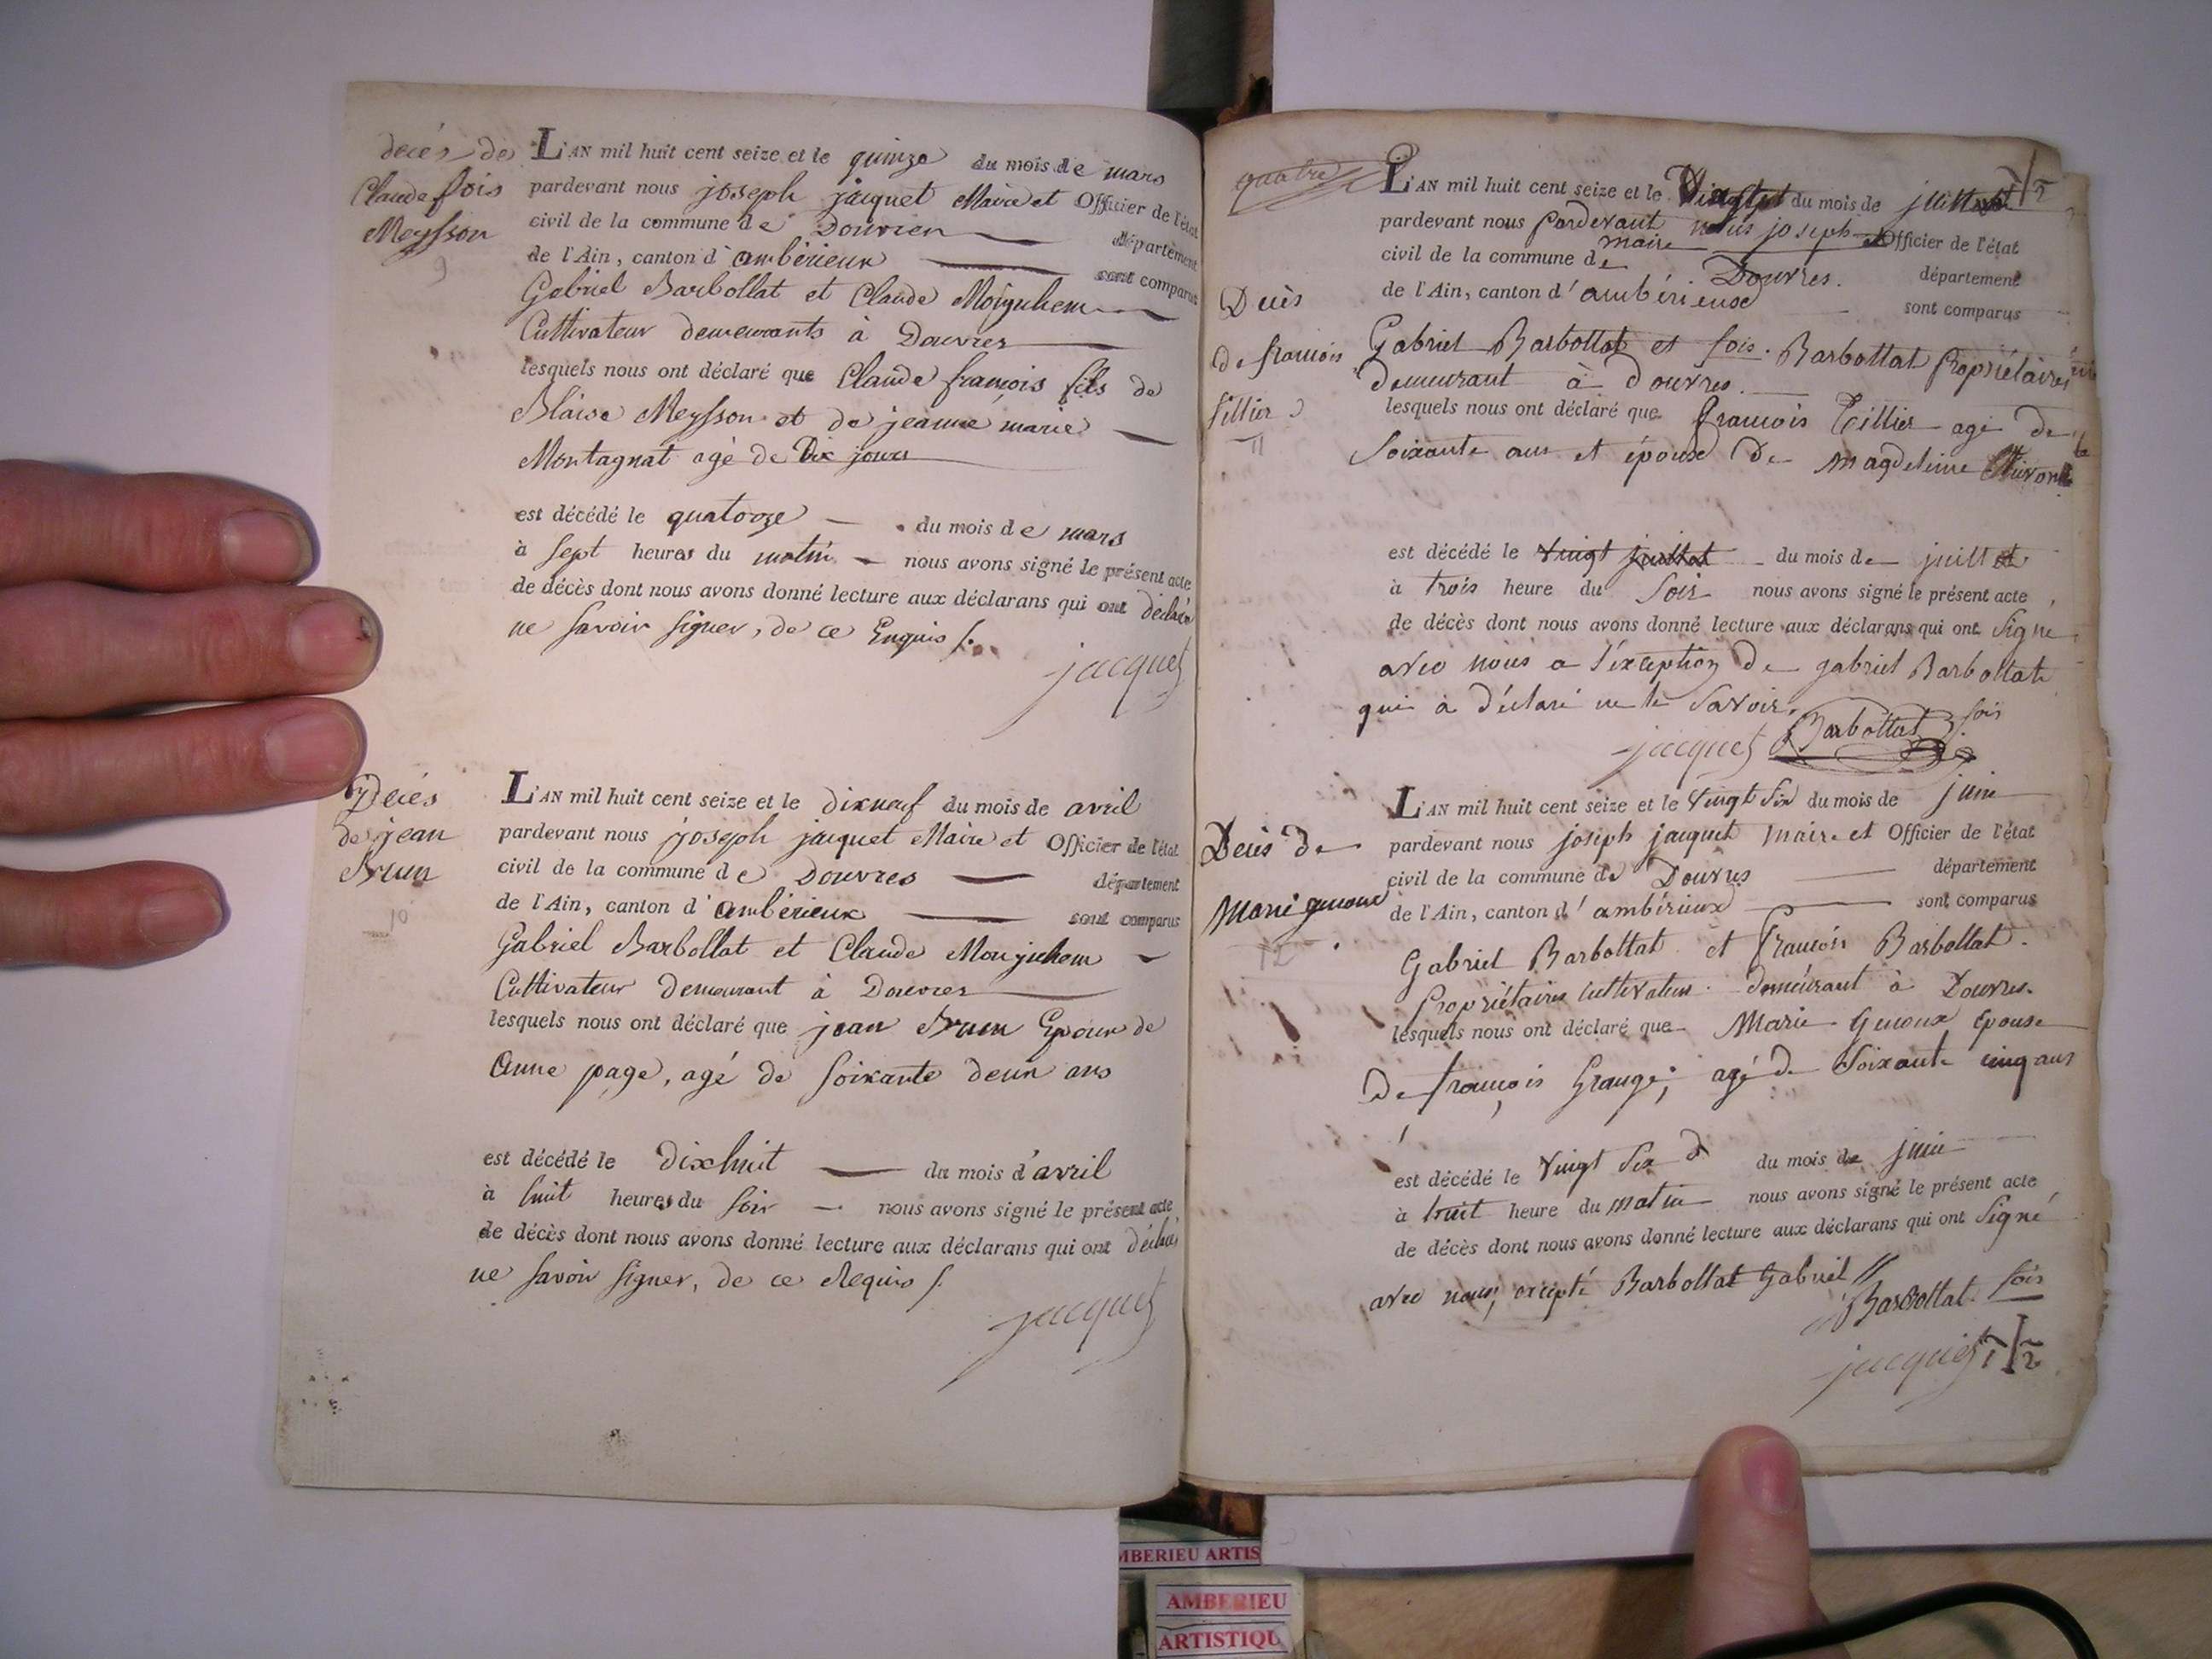 decés de
Claude fois
Meysson
9
L'AN mil huit cent seize et le quinze du mois de mars
pardevant nous joseph jacquet Maire et Officier de l'état
civil de la commune de Douvres département
de l'Ain, canton d'ambérieux sont comparus
Gabriel Barbollat et Claude
Cultivateur demeurants à Douvres
lesquels nous ont déclaré que Claude françois fils de
Blaise Meysson et de jeanne marie
Montagnat agé de Dix jours
est décédé le quatorze du mois de mars
à sept heures du matin nous avons signé le présent acte
de décès dont nous avons donné lecture aux déclarans qui ont déclaré
ne savoir signer, de ce Enquis
jacquet
Decés
de jean
Brun
10
L'AN mil huit cent seize et le dixneuf du mois de avril
pardevant nous joseph jacquet Maire et Officier de l'état
civil de la commune de Douvres département
de l'Ain, canton d'ambérieux sont comparus
Gabriel Barbollat et Claude
Cultivateur demeurant à Douvres
lesquels nous ont déclaré que jean Brun Epoux de
Anne page, agé de soixante deux ans
est décédé le dixhuit du mois d'avril
à huit heures du soir nous avons signé le présent acte
de décès dont nous avons donné lecture aux déclarans qui ont déclaré
ne savoir signer, de ce Requis
jacquet
quatre
Decès
de francois
Tillier
11
L'AN mil huit cent seize et le du mois de juillet
pardevant nous pardevant nous joseph Officier de l'état
maire
civil de la commune de Douvres. département
de l'Ain, canton d'ambérieux sont comparus
Gabriel Barbottat et fois. Barbottat Propriétaires
demeurant à douvres.
lesquels nous ont déclaré que francois Tillier agé de
soixante ans et époux de magdeleine
est décédé le vingt juillet du mois de juillet
à trois heure du soir nous avons signé le présent acte
de décès dont nous avons donné lecture aux déclarans qui ont signé
avec nous a l'exception de gabriel Barbottat
qui à déclaré ne le savoir.
jacquet Barbottat fois
Decès de
Marie genoux
12
L'AN mil huit cent seize et le vingt six du mois de juin
pardevant nous joseph jacquet maire et Officier de l'état
civil de la commune de Douvres département
de l'Ain, canton d'ambérieux sont comparus
Gabriel Barbottat et francois Barbottat.
Propriétaires cultivateurs demeurant à Douvres.
lesquels nous ont déclaré que Marie Genoux Epouse
de françois Grange; agé de soixante cinq ans
est décédé le vingt six du mois de juin
à huit heure du matin nous avons signé le présent acte
de décès dont nous avons donné lecture aux déclarans qui ont signé
avec nous, excepté Barbottat Gabriel
Barbottat fois
jacquet
MBERIEU ARTIS
AMBERIEU
ARTISTIQU